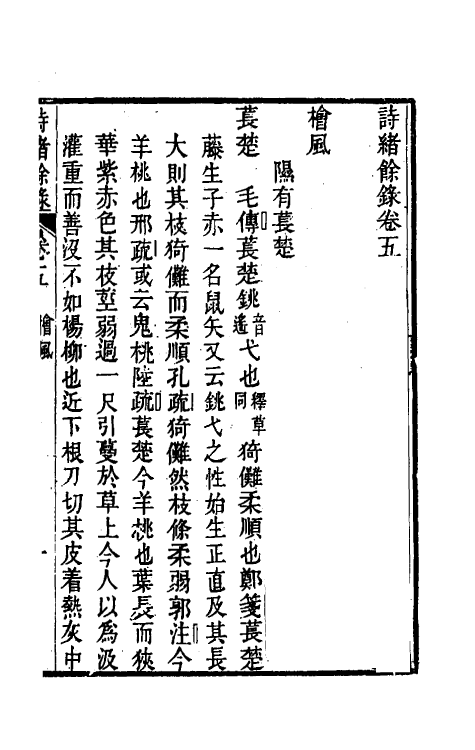 詩緒餘錄卷五
檜風
隰有萇楚
萇楚 毛傳萇楚銚音遙弋也釋草同猗儺柔順也鄭箋萇楚
藤生子赤一名鼠矢又云銚弋之性始生正直及其長
大則其枝猗儺而柔順孔疏猗儺然枝條柔弱郭注今
羊桃也邢疏或云鬼桃陸疏萇楚今羊桃也葉長而狹
華紫赤色其枝莖弱過一尺引蔓於草上今人以為汲
灌重而善沒不如楊柳也近下根刀切其皮着熱灰中
詩緒餘錄 卷五 檜風